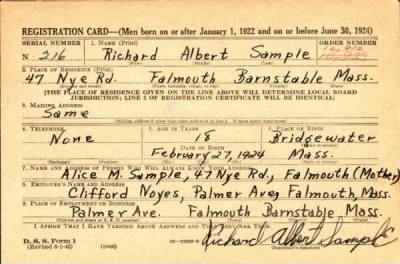 REGISTRATION CARD—(Men born on or after January 1, 1922 and on or before June 30, 1924)
SERIAL NUMBER 1. NAME (Print) ORDER NUMBER
N 216 Richard Albert Sample
2. PLACE OF RESIDENCE (Print)
47 Nye Rd. Falmouth Barnstable Mass.
[THE PLACE OF RESIDENCE GIVEN ON THE LINE ABOVE WILL DETERMINE LOCAL BOARD
JURISDICTION; LINE 2 OF REGISTRATION CERTIFICATE WILL BE IDENTICAL]
3. MAILING ADDRESS
Same
[Mailing address if other than place indicated on line 2. If same insert word same]
4. TELEPHONE 5. AGE IN YEARS 6. PLACE OF BIRTH
None 18 Bridgewater
DATE OF BIRTH
February 27, 1924 Mass.
7. NAME AND ADDRESS OF PERSON WHO WILL ALWAYS KNOW YOUR ADDRESS
Alice M. Sample, 47 Nye Rd., Falmouth (Mother)
8. EMPLOYER'S NAME AND ADDRESS
Clifford Noyes, Palmer Ave, Falmouth, Mass.
9. PLACE OF EMPLOYMENT OR BUSINESS
Palmer Ave. Falmouth Barnstable Mass.
I AFFIRM THAT I HAVE VERIFIED ABOVE ANSWERS AND THAT THEY ARE TRUE.
D. S. S. Form 1
(Revised 6-1-42) (over)
Richard Albert Sample